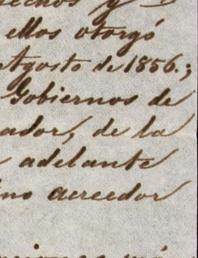 ellos otorgó
Agosto de 1856.;
Gobiernos de
ador, de la
adelante
no acreedor